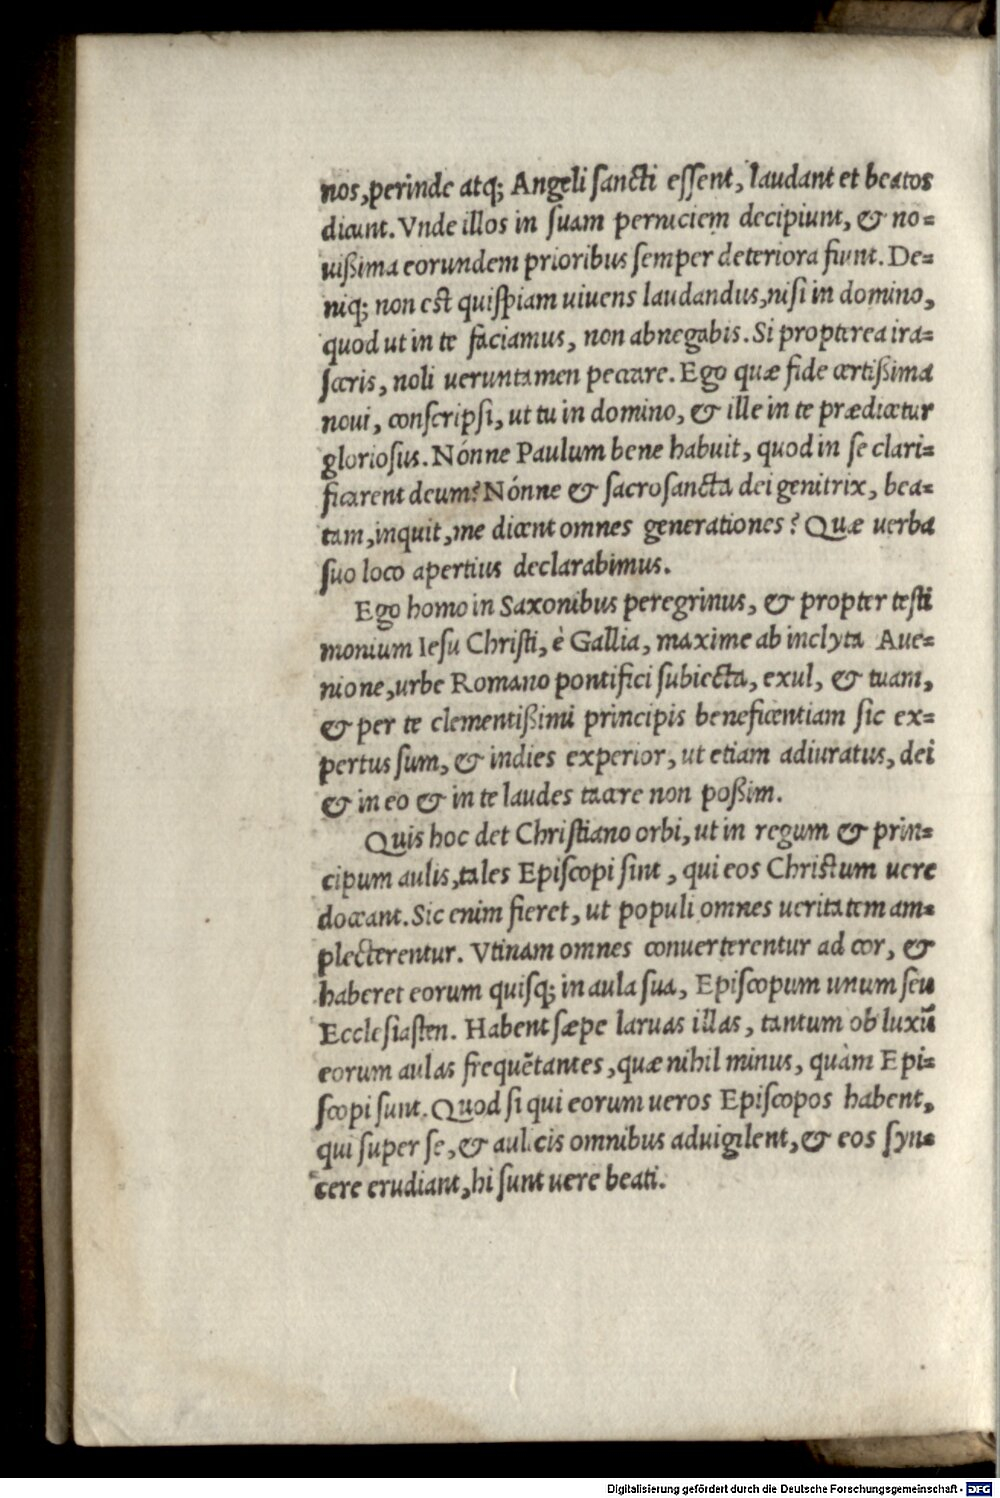 nos, perinde atq; Angeli ſancti eſſent, laudant et beatos
dicunt. Vnde illos in ſuam perniciem decipiunt, & no=
uißima eorundem prioribus ſemper deteriora fiunt. De=
niq; non est quiſpiam uiuens laudandus, niſi in domino,
quod ut in te faciamus, non abnegabis. Si propterea ira=
ſceris, noli ueruntamen peccare. Ego quæ fide certißima
noui, conſcripſi, ut tu in domino, & ille in te prædicetur
glorioſus. Nónne Paulum bene habuit, quod in ſe clari=
ficarent deum? Nónne & ſacroſancta dei genitrix, bea=
tam, inquit, me dicent omnes generationes? Quæ uerba
ſuo loco apertius declarabimus.
Ego homo in Saxonibus peregrinus, & propter teſti
monium Ieſu Chriſti, è Gallia, maxime ab inclyta Aue=
nione, urbe Romano pontifici ſubiecta, exul, & tuam,
& per te clementißimi principis beneficentiam ſic ex=
pertus ſum, & indies experior, ut etiam adiuratus, dei
& in eo & in te laudes tacere non poßim.
Quis hoc det Chriſtiano orbi, ut in regum & prin=
cipum aulis, tales Epiſcopi ſint, qui eos Christum uere
doceant. Sic enim fieret, ut populi omnes ueritatem am=
plecterentur. Vtinam omnes conuerterentur ad cor, &
haberet eorum quiſq; in aula ſua, Epiſcopum unum ſeu
Eccleſiaſten. Habent ſæpe laruas illas, tantum ob luxũ
eorum aulas frequẽtantes, quæ nihil minus, quàm Epi=
ſcopi ſunt. Quod ſi qui eorum ueros Epiſcopos habent,
qui ſuper ſe, & aulicis omnibus aduigilent, & eos ſyn=
cere erudiant, hi ſunt uere beati.
Digitalisierung gefördert durch die Deutsche Forschungsgemeinschaft - DFG